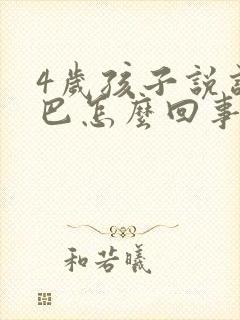 4歲孩子說話
巴怎麼回事
和若曦